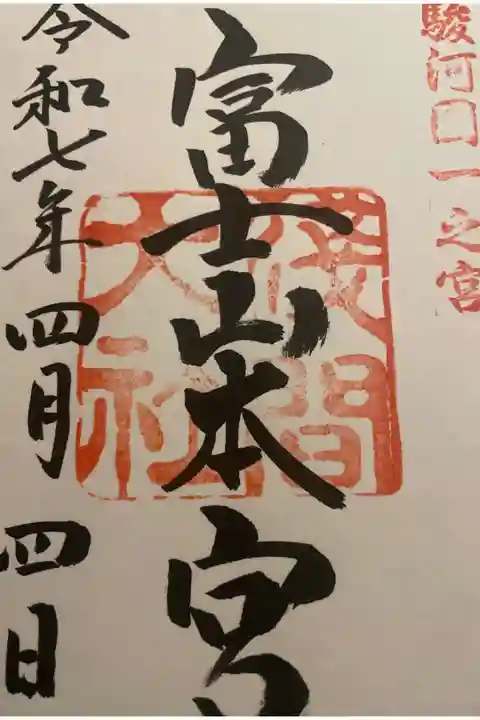 駿河国一之宮
富士山本宮
浅間
大社
令和七年四月四日